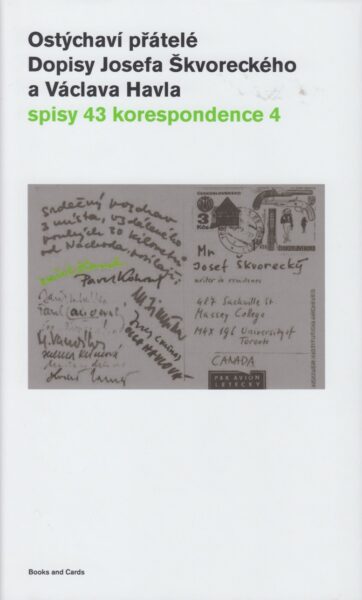 Ostýchaví přátelé
Dopisy Josefa Škvoreckého
a Václava Havla
spisy 43 korespondence 4
srdečný pozdrav
z místa, vzdáleného
pouhých 30 kilometrů
od Náchoda, posílají
Pavel Kohout
ČESKOSLOVENSKO
3
Kčs
Mr
Josef Škvorecký
writer in residence
467 Sackville St
Massey College
M4X 1G6 University of
Toronto
CANADA
PAR AVION
LETECKY
HOOVER INSTITUTION ARCHIVES
Books and Cards